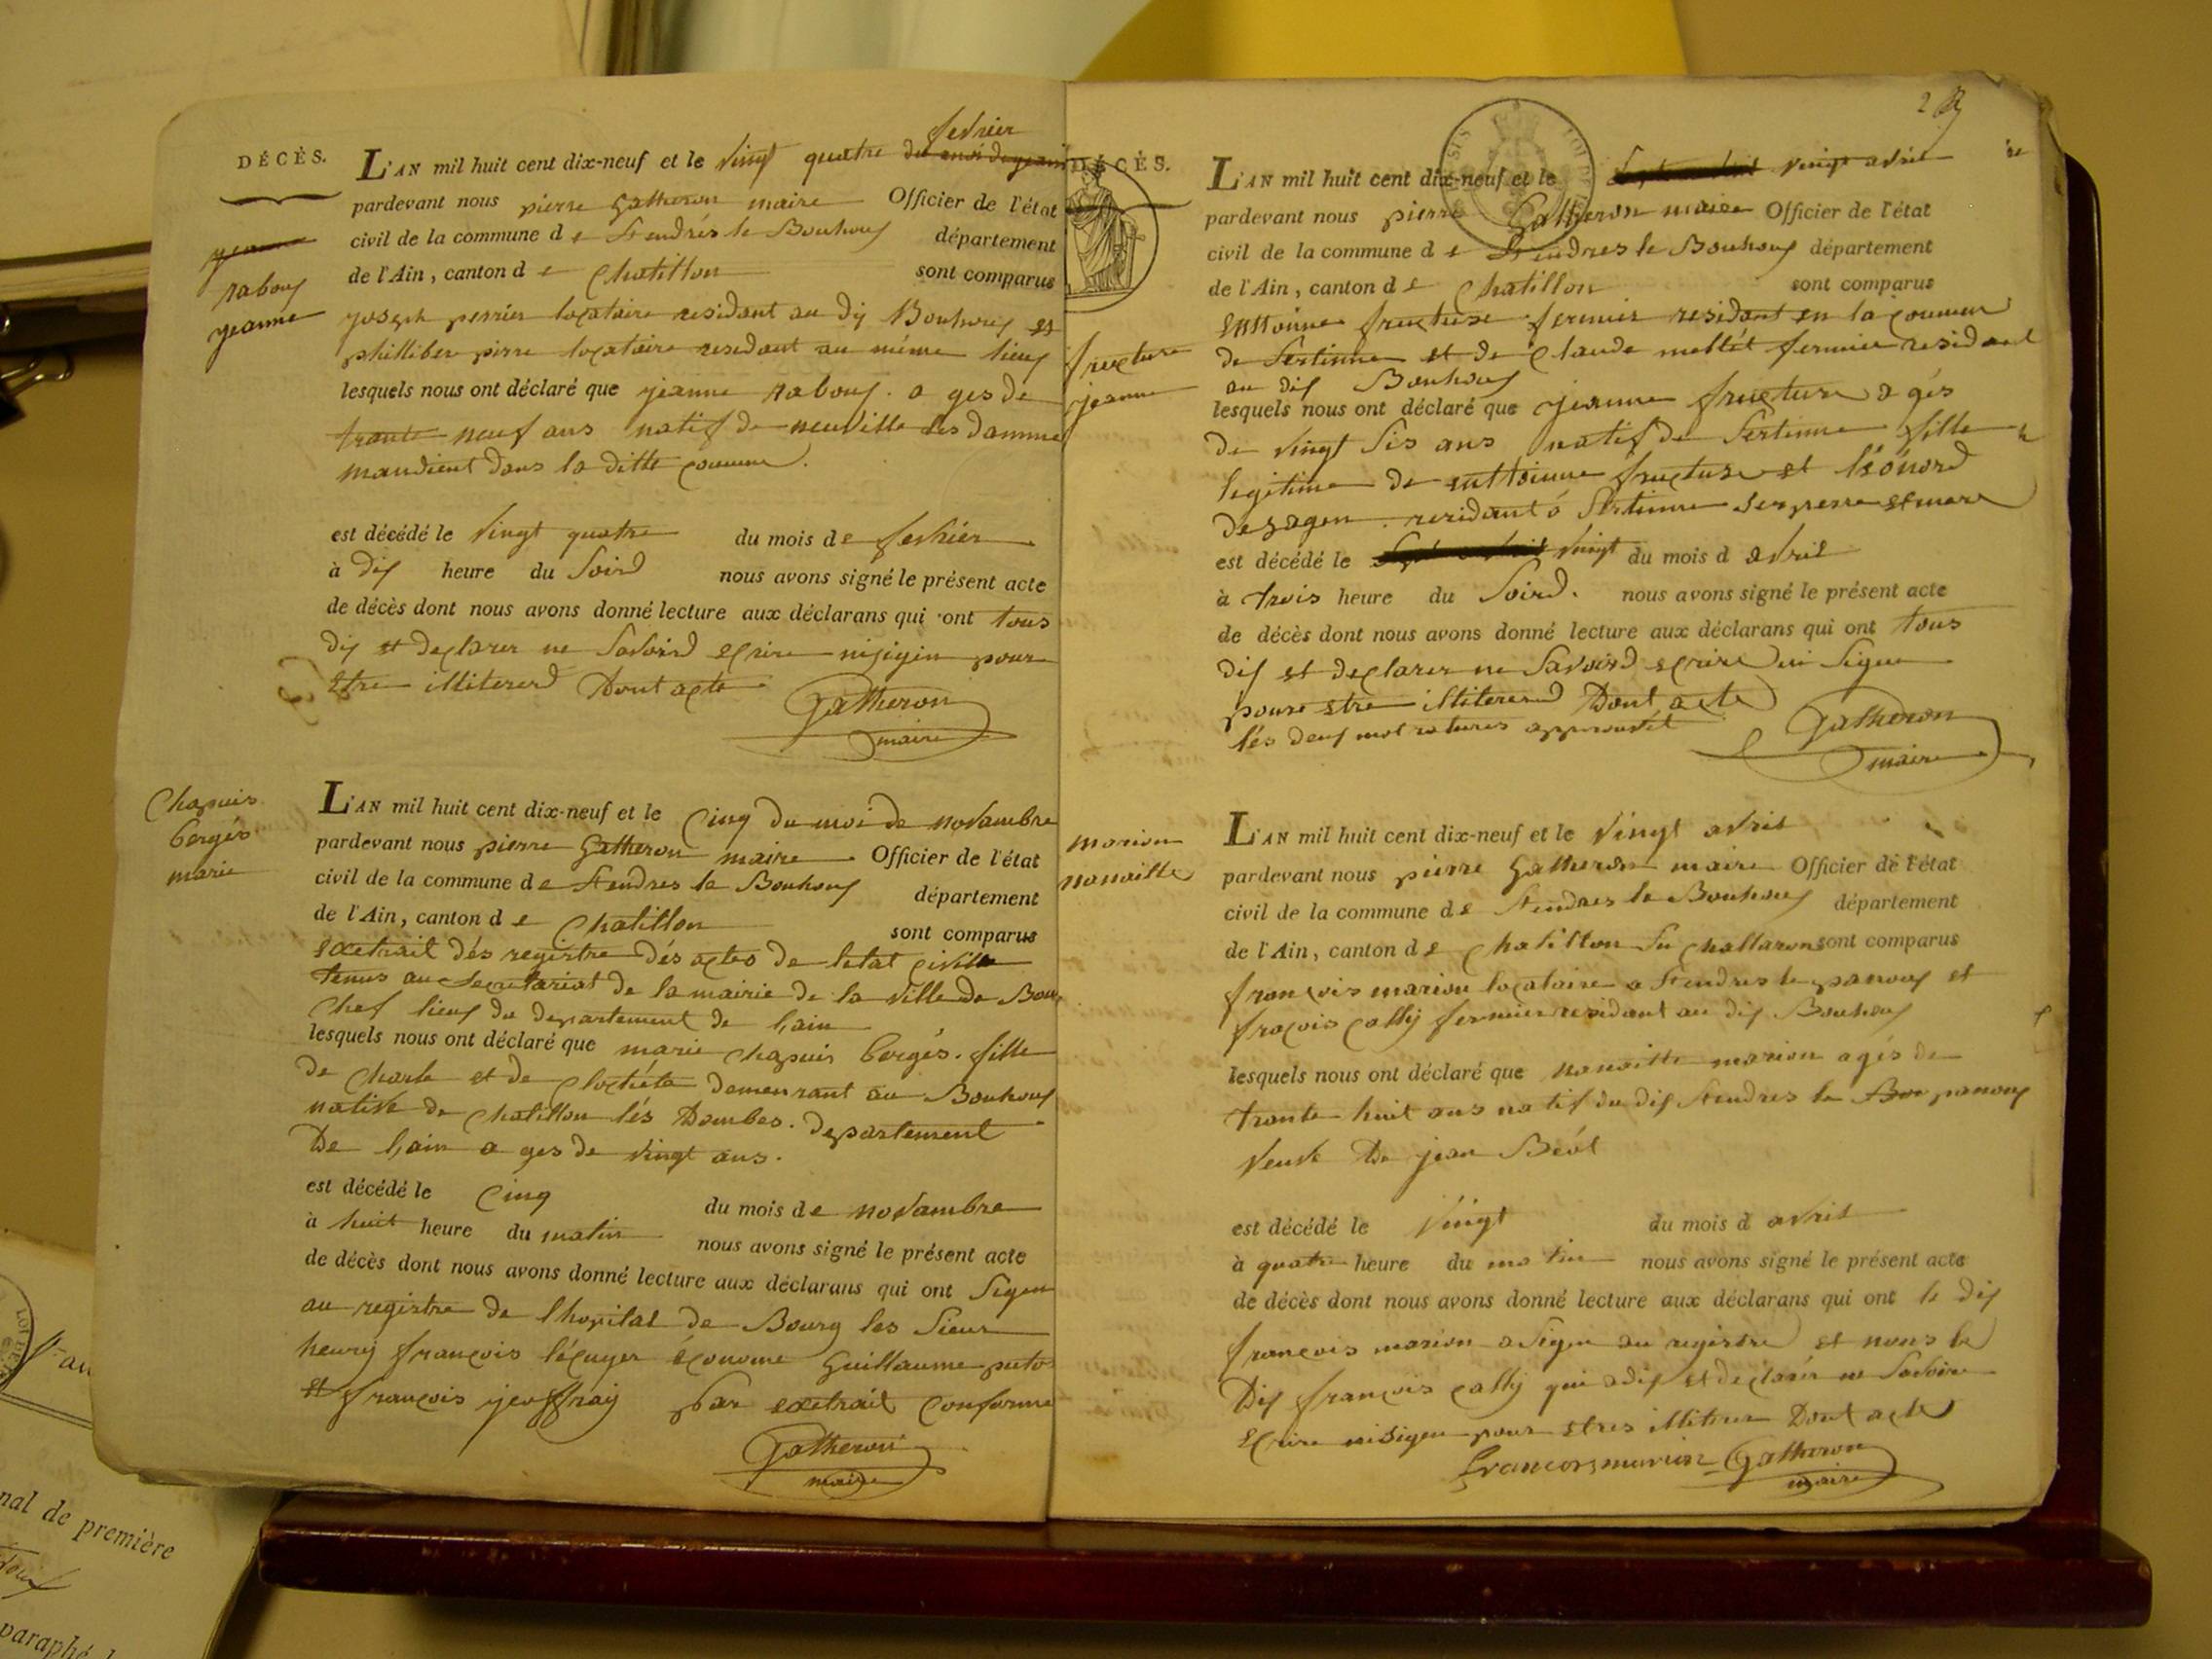 DÉCÈS.
yeanne
rabouy
yeanne
fevrier
L'AN mil huit cent dix-neuf et le vingt quatre du
pardevant nous pierre Gatheron maire Officier de l'état
civil de la commune de St endrés le Bouhouy département
de l'Ain, canton de Chatillon sont comparus
yoseph perrier locataire residant au dij Bouhouy et
philliber pirre locataire resedant au même lieuy
lesquels nous ont déclaré que yeanne rabouy . a ges de
trante neuf ans natif de neuville les damme
mandient dans la ditte comune.
est décédé le vingt quatre du mois de fevhiér
à dij heure du soird nous avons signé le présent acte
de décès dont nous avons donné lecture aux déclarans qui ont tous
dij et declarer ne savoird ecrire pour
etre illitererd Dont acte
Gatheron
maire
Chapuis
bergés
marie
L'AN mil huit cent dix-neuf et le Cinq du moi de novambre
pardevant nous pierre Gatheron maire Officier de l'état
civil de la commune de St endres le Bouhouy département
de l'Ain, canton de Chatillon sont comparus
extrait dés registre dés actes de letat civille
tenus au secretariat de la mairie de la ville de Bour
Chef lieuy du departement de lain
lesquels nous ont déclaré que marie chapuis bergés . fille
de charle et de demeurant au Bouhouy
native de chatillon lés Dombes . departement
De lain a ges de vingt ans .
est décédé le Cinq du mois de novambre
à huit heure du matin nous avons signé le présent acte
de décès dont nous avons donné lecture aux déclarans qui ont signe
au registre de lhopital de Bourg les sieur
henrij françois léçuyer éçonome Guillaume puto
et françois yeoffraij par extrait conforme
Gatheron
maire
2
DÉCÈS.
fructure
jeanne
L'AN mil huit cent dix-neuf et le vingt avril
pardevant nous pierre Gatheron maire Officier de l'état
civil de la commune de St endres le Bouhouy département
de l'Ain, canton de Chatillon sont comparus
enttoinne fructure fermier residant en la comune
de sertinne et de Claude mellét fermier residant
au dij Bouhouy
lesquels nous ont déclaré que yeanne fructure a gés
de vingt sis ans natif de sertinne fille
legitime de enttoinne fructure et léonord
desagen . residant á sertinne ser perre et mere
est décédé le vingt du mois d avril
à trois heure du soird . nous avons signé le présent acte
de décès dont nous avons donné lecture aux déclarans qui ont tous
dij et declarer ne savoird ecrire ni signe
poure etre illitererd Dont acte
lés deuy mot ratures approuvét
Gatheron
maire
marion
nanaitte
L'AN mil huit cent dix-neuf et le vingt avril
pardevant nous pierre Gatheron maire Officier de l'état
civil de la commune de St endres le Bouhouy département
de l'Ain, canton de Chatillon su challaron sont comparus
françois marion locataire a St endres le panouy et
fraçois cathij fermier residant au dij Bouhouy
lesquels nous ont déclaré que nanaitte marion agés de
trante huit ans natif du dij St endres le Bou panouy
veuve De jean Béól
est décédé le vingt du mois d avril
à quatre heure du matin nous avons signé le présent acte
de décès dont nous avons donné lecture aux déclarans qui ont le dij
françois marion a signe au registre et nons le
Dij françois cathij qui adij et declarér ne savoire
ecrire nisigne pour etres illitere Dont acte
francois marion Gatheron
maire
nal de première
paraphé